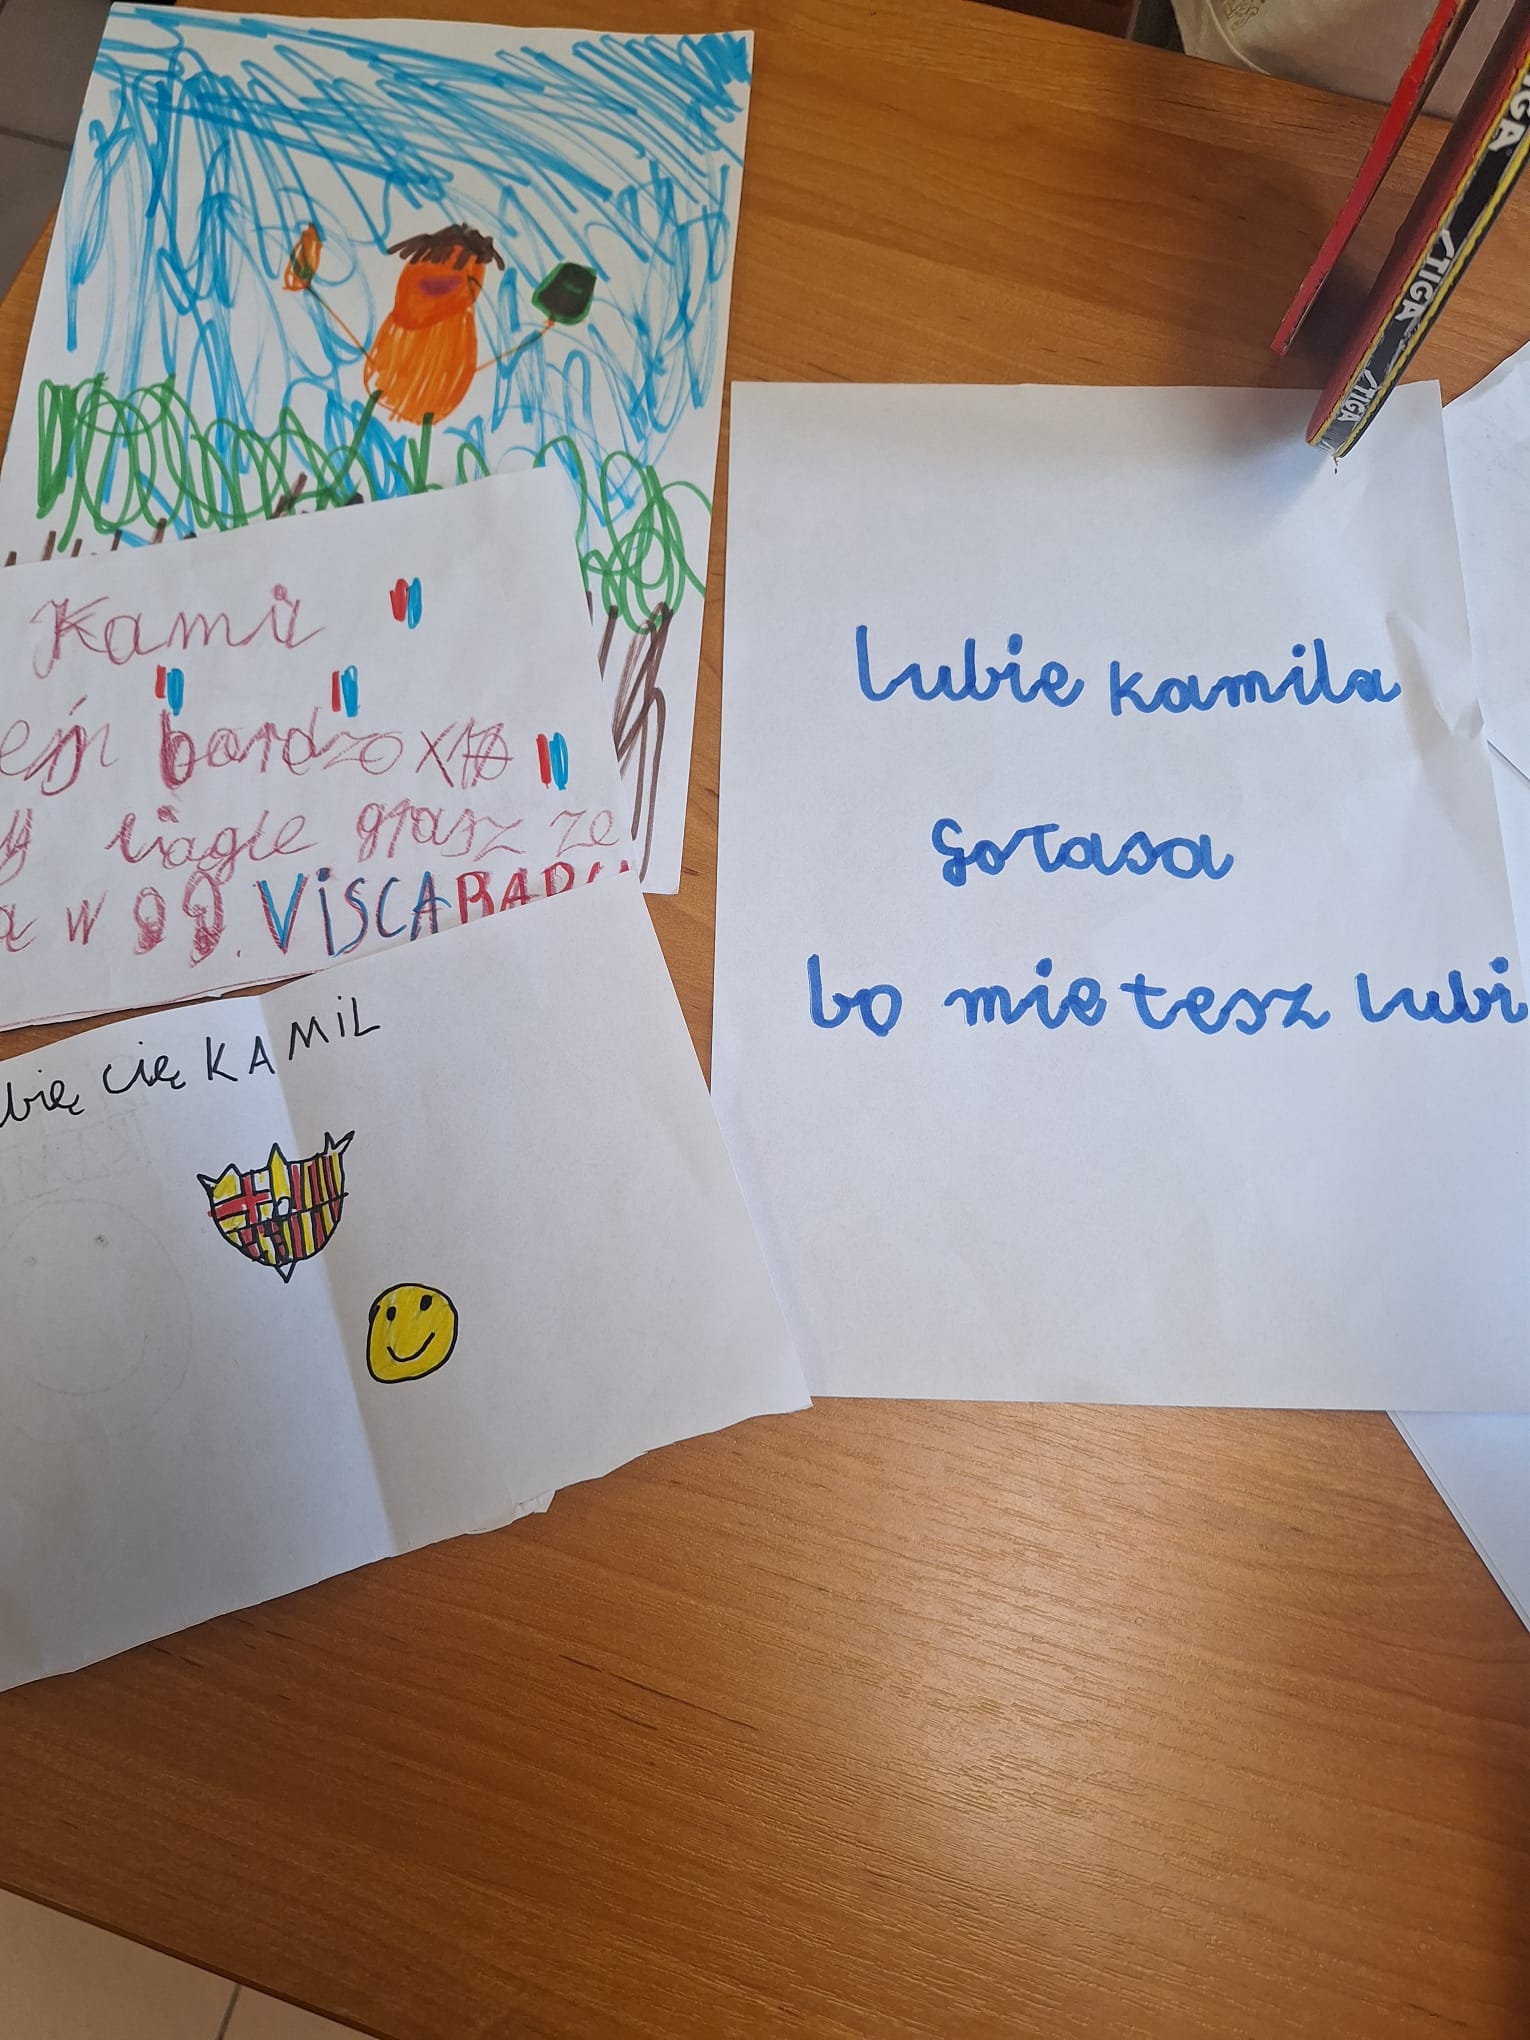 Kamil
bardzo
ciągle grasz ze
w gg. VISCA BARC
bię cię KAMIL
lubie kamila
Gołasa
bo mie tesz lubi
STIGA
STIGA